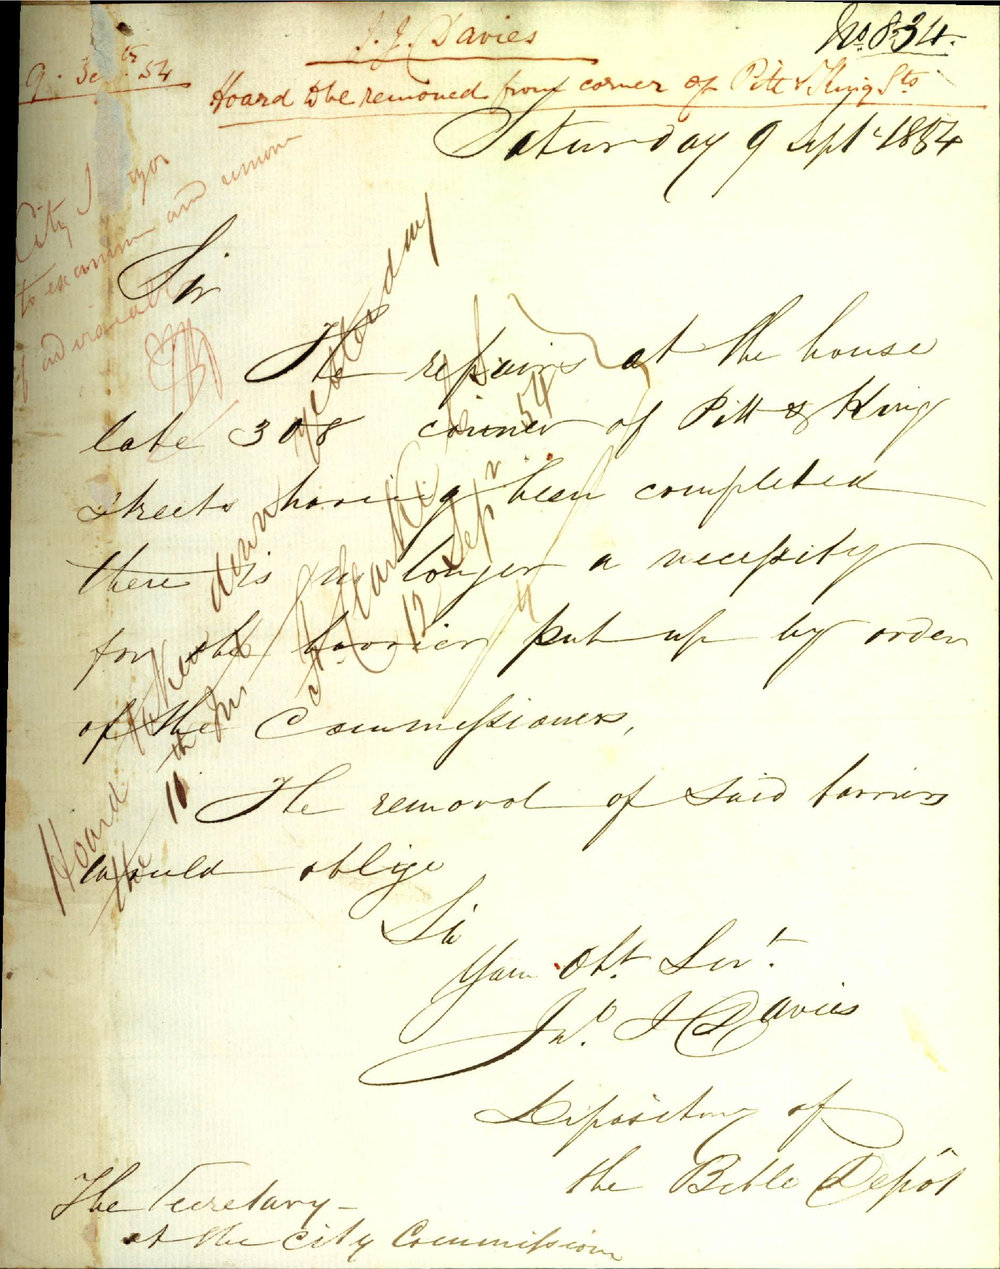 J. J. Davies
No 834.
9. Sepr. 54
Hoard to be removed from corner of Pitt & King Sts
Saturday 9 Septr 1854
City Surveyor
to examine and remove
if advisable
Sir
The repairs at the house
late 308 corner of Pitt & King
streets having been completed
there is no longer a necessity
for the barrier put up by order
of the Commissioners,
The removal of said barrier
would oblige
Sir
Your Obt. Servt.
Jno. J Davies
Depositary of
the Bible Depôt
The Secretary
at the City Commission
Hoard taken down yesterday
the 11th Ins
12 Sepr 54